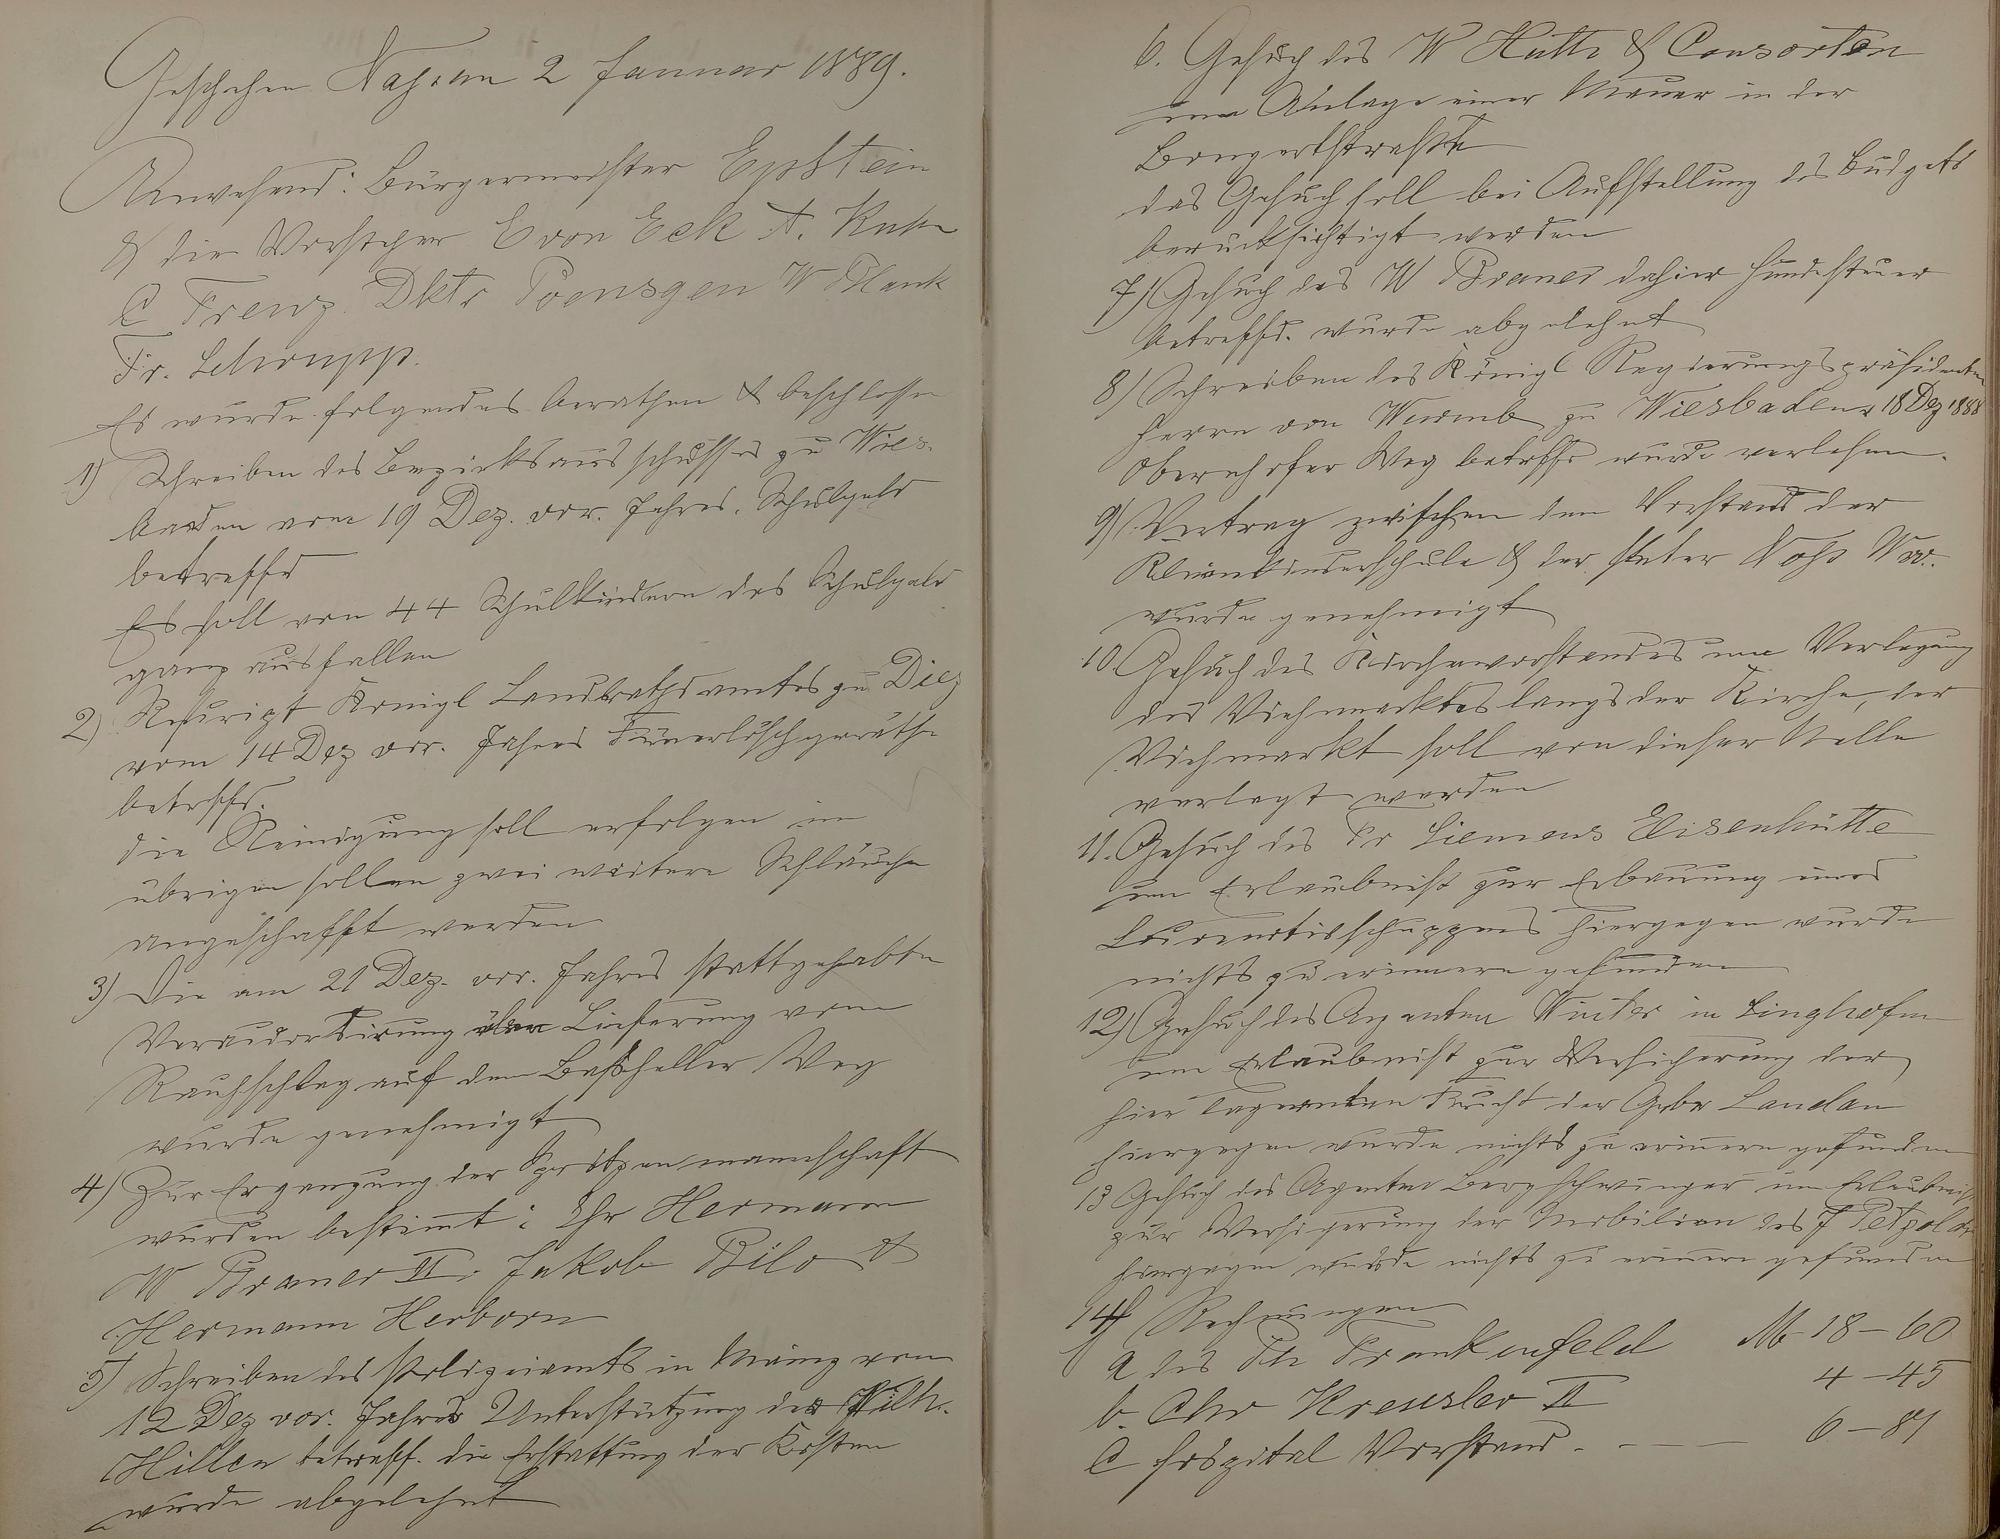 Geschehen Nassau 2 Januar 1889.
Anwesend: Bürgermeister Epstein
& die Vorsteher E von Eck A. Kuhn
C Frenz. Dktr Poensgen W Plank
Fr. Schrupp.
Es wurde folgendes berathen & beschlossen
1) Schreiben des Bezirksausschusses zu Wies-
baden vom 19 Dez. vor. Jahres, Schulgeld
betreffd
Es soll von 44 Schulkindern das Schulgeld
ganz ausfallen
2) Rescript Königl Landrathsamtes zu Diez
vom 14 Dez vor. Jahres Feuerlöschgeräthe
betreffd.
die Reinigung soll erfolgen im
übrigen sollen zwei weitere Schläuche
angeschafft werden
3) Die am 21 Dez. vor. Jahres stattgehabte
Veraccordirung über Lieferung vom
Rauhschlag auf dem Bassheller Weg
wurde genehmigt
4) Zur Ergänzung der Spritzenmannschaft
wurden bestimt: Chr Hermann
W. Braner II. Jakob Bilo &
Hermann Herborn
5) Schreiben des Polizeiamts in Mainz vom
12 Dez vor. Jahres Unterstützung des Wilh.
Hillen betreff. die Erstattung der Kosten
wurde abgelehnt
6. Gesuch des W Hütte & Consorten
um Anlage einer Mauer in der
Bongertstraße
das Gesuch soll bei Aufstellung des Budgets
berücksichtigt werden
7) Gesuch des W Braner dahier Hundesteuer
betreffd. wurde abgelehnt
8) Schreiben des Königl Regierungspräsidenten
Herrn von Wurmb zu Wiesbaden v 18 Dez 1888
Obernhofer Weg betreffd wurde verlesen.
9) Vertrag zwischen dem Vorstand der
Kleinkinderschule & der Peter Wwe.
wurde genehmigt
10 Gesuch des Kirchenvorstandes um Verlegung
des Viehmarktes langs der Kirche, der
Viehmarkt soll von dieser Stelle
verlegt werden
11. Gesuch des Fr Siemens Elisenhütte
um Erlaubniß zur Erbauung eines
Locomotivschuppens hiergegen wurde
nichts zu erinnern gefunden
12) Gesuch des Agenten Winter in Singhofen
um Erlaubniß zur Versicherung der
hier lagernden Frucht der Gebr Landau
hiergegen wurde nichts zu erinnern gefunden
13 Gesuch des Agenten Bergschwinger um Erlaubniß
zur Versicherung der Mobilien des J Petzold
hiergegen wurde nichts zu erinnern gefunden
14) Rechnungen
a des Ph Frankenfeld M 18-60
b. Chr Kreusler II 4-45
c Hospital Vorstand. - - - 6-81